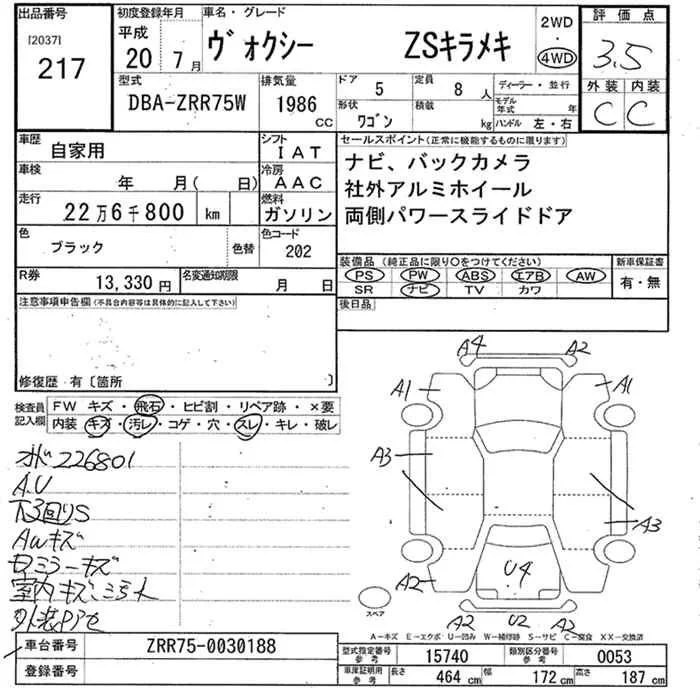 出品番号
[2037]
217
初度登録年月
平成
20 7月
車名・グレード
ヴォクシー ZSキラメキ
2WD
・
4WD
評価点
3.5
外装 内装
C C
型式
DBA-ZRR75W
排気量
1986 CC
ドア 5
定員 8 人
形状 ワゴン
積載 kg
ディーラー・並行
モデル年式 年
ハンドル 左・右
車歴
自家用
シフト
IAT
車検
年 月( 日)
冷房
AAC
走行
22万6千800 km
燃料
ガソリン
色
ブラック
色替
色コード
202
R券
13,330円
名変通知期限
月 日
セールスポイント(正常に機能するものに限ります)
ナビ、バックカメラ
社外アルミホイール
両側パワースライドドア
装備品(純正品に限り〇をつけてください)
PS PW ABS エアB AW
SR ナビ TV カワ
新車保証書
有・無
後日品
注意事項申告欄(不具合内容等は具体的に記入して下さい)
修復歴 有〔箇所 〕
検査員記入欄
FW キズ・飛石・ヒビ割・リペア跡・×要
内装 キズ・汚レ・コゲ・穴・スレ・キレ・破レ
226801
A.U
下3回りS
AWキズ
ミラーキズ
室内キズ、ミラ
外装
A4 A2
A1 A1
A3
A3
A2 U4
A2 U2 A2
スペア
A-キズ E-エクボ U-凹み W-補修跡 S-サビ C-腐食 XX-交換済
車台番号
ZRR75-0030188
登録番号
型式指定番号 参考
15740
類別区分番号 参考
0053
車庫証明用 参考
長さ 464 cm
幅 172 cm
高さ 187 cm